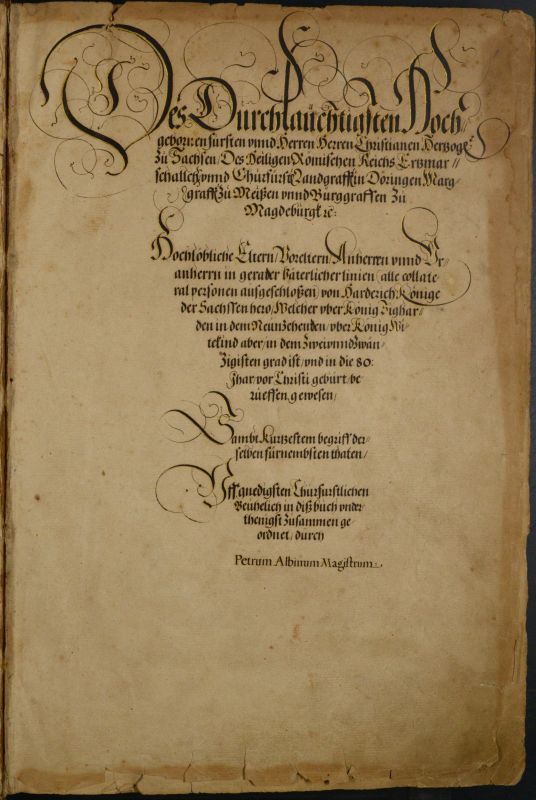 Des Durchlauchtigsten Hoch-
gebornen fursten vnnd Herren Herren Christianen Hertzogk
zu Sachsen / Des Heiligen Römischen Reichs Ertzmar-
schalleth vnnd Churfurst Landgraff in Döringen Marg-
graff zu Meißen vnnd Burggraffen zu
Magdeburgk ꝛc:
Hochlöbliche Eltern / Voreltern / Anherren vnnd Vr-
anherrn in gerader Väterlicher linien / alle collate-
ral personen ausgeschloßen / von Harderich Könige
der Sachssen hero / Welcher vber König Sighar-
den in dem Neunzehenden / vber König Wi-
tekind aber / in dem Zweiunndzwan-
zigisten grad ist / vnd in die 80:
Jhar / vor Christi geburt / be-
rueffen, gewesen /
Sambt Kurtzestem begriff der-
selben fürnembsten thaten /
Vff gnedigsten Churfurstlichen
Beuhelich in diß buch vnder-
thenigst zusammen ge-
ordnet / durch
Petrum Albinum Magistrum.